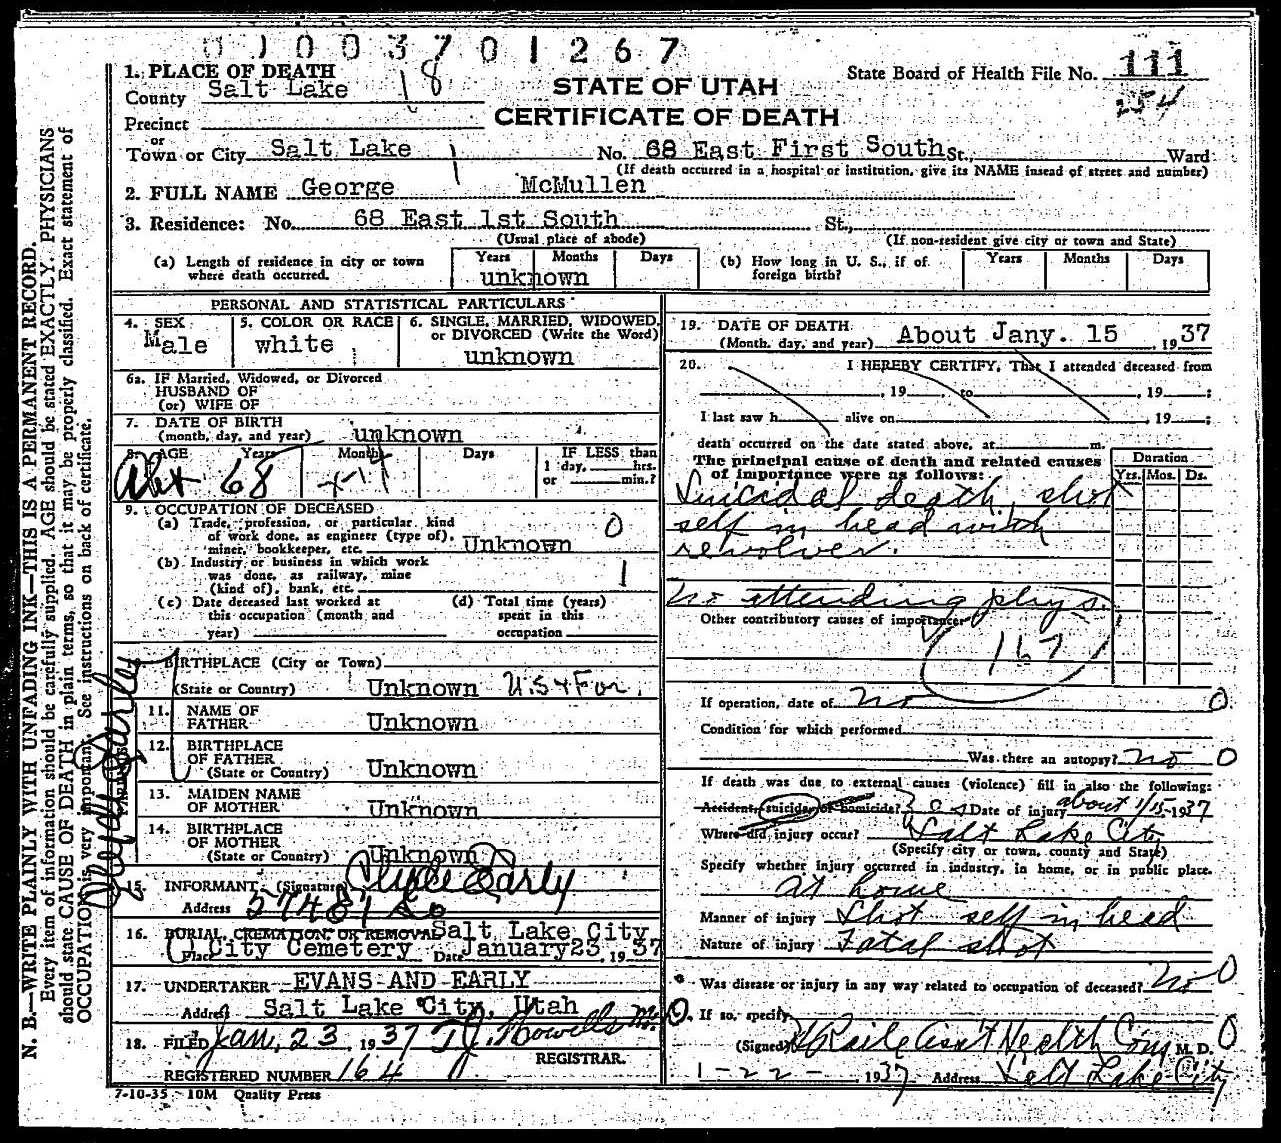 01003701267
1. PLACE OF DEATH
County Salt Lake 18
STATE OF UTAH
CERTIFICATE OF DEATH
State Board of Health File No. 111
254
Precinct
or
Town or City Salt Lake 1 No. 68 East First South St., Ward
(If death occurred in a hospital or institution, give its NAME insead of street and number)
2. FULL NAME George McMullen
3. Residence: No. 68 East 1st South St.,
(Usual place of abode) (If non-resident give city or town and State)
(a) Length of residence in city or town where death occurred. Years Months Days unknown
(b) How long in U. S., if of foreign birth? Years Months Days
PERSONAL AND STATISTICAL PARTICULARS
4. SEX Male
5. COLOR OR RACE white
6. SINGLE, MARRIED, WIDOWED, or DIVORCED (Write the Word) unknown
6a. IF Married, Widowed, or Divorced
HUSBAND OF
(or) WIFE OF
7. DATE OF BIRTH
(month, day, and year) unknown
8. AGE Years Months Days IF LESS than
Abt 68 1 day, hrs.
or min.?
9. OCCUPATION OF DECEASED
(a) Trade, profession, or particular kind 0
of work done, as engineer (type of),
miner, bookkeeper, etc. Unknown
(b) Industry or business in which work 1
was done, as railway, mine
(kind of), bank, etc.
(c) Date deceased last worked at
this occupation (month and
year)
(d) Total time (years)
spent in this
occupation
BIRTHPLACE (City or Town)
(State or Country) Unknown U.S + For.
11. NAME OF
FATHER Unknown
12. BIRTHPLACE
OF FATHER
(State or Country) Unknown
13. MAIDEN NAME
OF MOTHER Unknown
14. BIRTHPLACE
OF MOTHER
(State or Country) Unknown
15. INFORMANT (Signature) Clyde Early
Address
16. BURIAL, CREMATION, OR REMOVAL Salt Lake City
Place City Cemetery Date January 23, 1937
17. UNDERTAKER EVANS AND EARLY
Address Salt Lake City, Utah
18. FILED Jan. 23 1937 T.J. Howells M.D.
REGISTRAR.
REGISTERED NUMBER 164
7-10-35 10M Quality Press
19. DATE OF DEATH
(Month, day, and year) About Jany. 15, 1937
20. I HEREBY CERTIFY, That I attended deceased from
, 19 , to , 19 ;
I last saw h alive on , 19 ;
death occurred on the date stated above, at m.
The principal cause of death and related causes
of importance were as follows:
Duration
Yrs. Mos. Ds.
Suicidal death, shot
self in head with
revolver.
No attending phys.
Other contributory causes of importance:
167
If operation, date of no 0
Condition for which performed
Was there an autopsy? no 0
If death was due to external causes (violence) fill in also the following:
Accident, suicide, or homicide? Date of injury about 1/15-1937
Where did injury occur? Salt Lake City
(Specify city or town, county and State)
Specify whether injury occurred in industry, in home, or in public place.
At home
Manner of injury Shot self in head
Nature of injury Fatal shot
Was disease or injury in any way related to occupation of deceased? No 0
If so, specify
(Signed) Asst Health Com M. D. 0
1-22-, 1937 Address Salt Lake City
N. B.—WRITE PLAINLY WITH UNFADING INK—THIS IS A PERMANENT RECORD.
Every item of information should be carefully supplied. AGE should be stated EXACTLY. PHYSICIANS
should state CAUSE OF DEATH in plain terms, so that it may be properly classified. Exact statement of
OCCUPATION is very important. See instructions on back of certificate.
Clyde Early